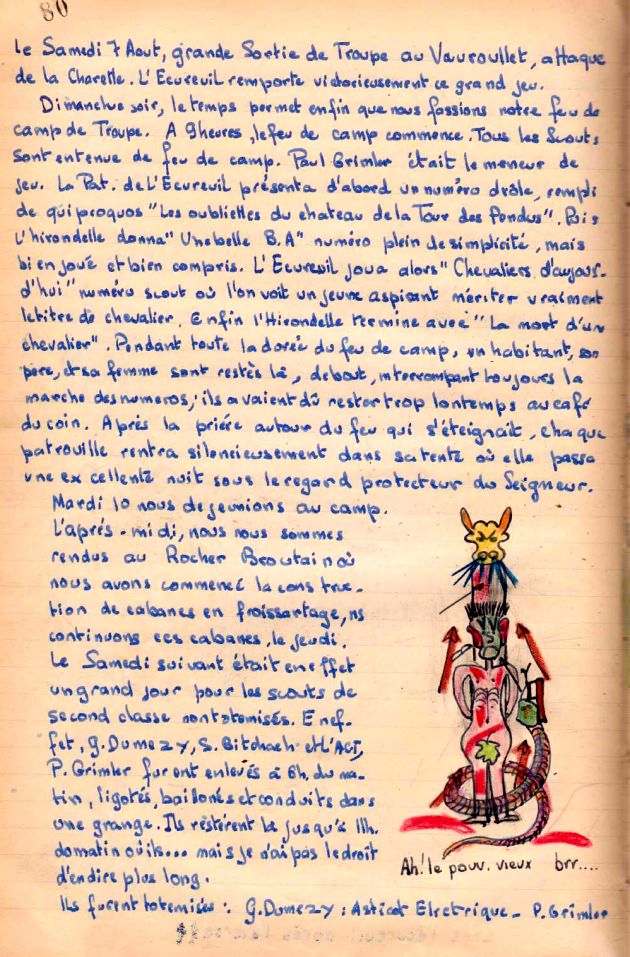 80
Le Samedi 7 Aout, grande Sortie de Troupe au Vauroullet, attaque
de la Charette. L'Ecureuil remporte victorieusement ce grand jeu.
Dimanche soir, le temps permet enfin que nous fassions notre feu de
camp de Troupe. A 9 heures, le feu de camp commence. Tous les Scouts
sont en tenue de feu de camp. Paul Grimler était le meneur de
jeu. La Pat. de L'Ecureuil présenta d'abord un numéro drôle, rempli
de quiproquos "Les oubliettes du chateau de la Tour des Pendus". Puis
L'hirondelle donna "Une belle B.A" numéro plein de simplicité, mais
bien joué et bien compris. L'Ecureuil joua alors "Chevaliers d'aujour-
d'hui" numéro scout où l'on voit un jeune aspirant mériter vraiment
le titre de chevalier. Enfin l'Hirondelle termine avec "La mort d'un
chevalier". Pendant toute la dorée du feu de camp, un habitant, son
père, et sa femme sont restés là, debout, interrompant toujours la
marche des numeros, ils avaient dû rester trop lontemps au café
du coin. Après la prière autour du feu qui s'éteignait, chaque
patrouille rentra silencieusement dans sa tente où elle passa
une excellente nuit sous le regard protecteur du Seigneur.
Mardi 10 nous dejeunions au camp.
L'après-midi, nous nous sommes
rendus au Rocher Broutain où
nous avons commencé la construc-
tion de cabanes en froissartage, ns
continuons ces cabanes, le jeudi.
Le Samedi suivant était en effet
un grand jour pour les scouts de
second classe non totemisés. En ef-
fet, G. Dumezy, S. et L'ACT,
P. Grimler furent enlevés à 6h. du ma-
tin, ligotés, baillonés et conduits dans
une grange. Ils restèrent là jusqu'à 11h.
du matin où ils... mais je n'ai pas le droit
d'en dire plus long.
Ah! le pauv. vieux brr....
Ils furent totemisés : G. Dumezy : Asticot Electrique - P. Grimler